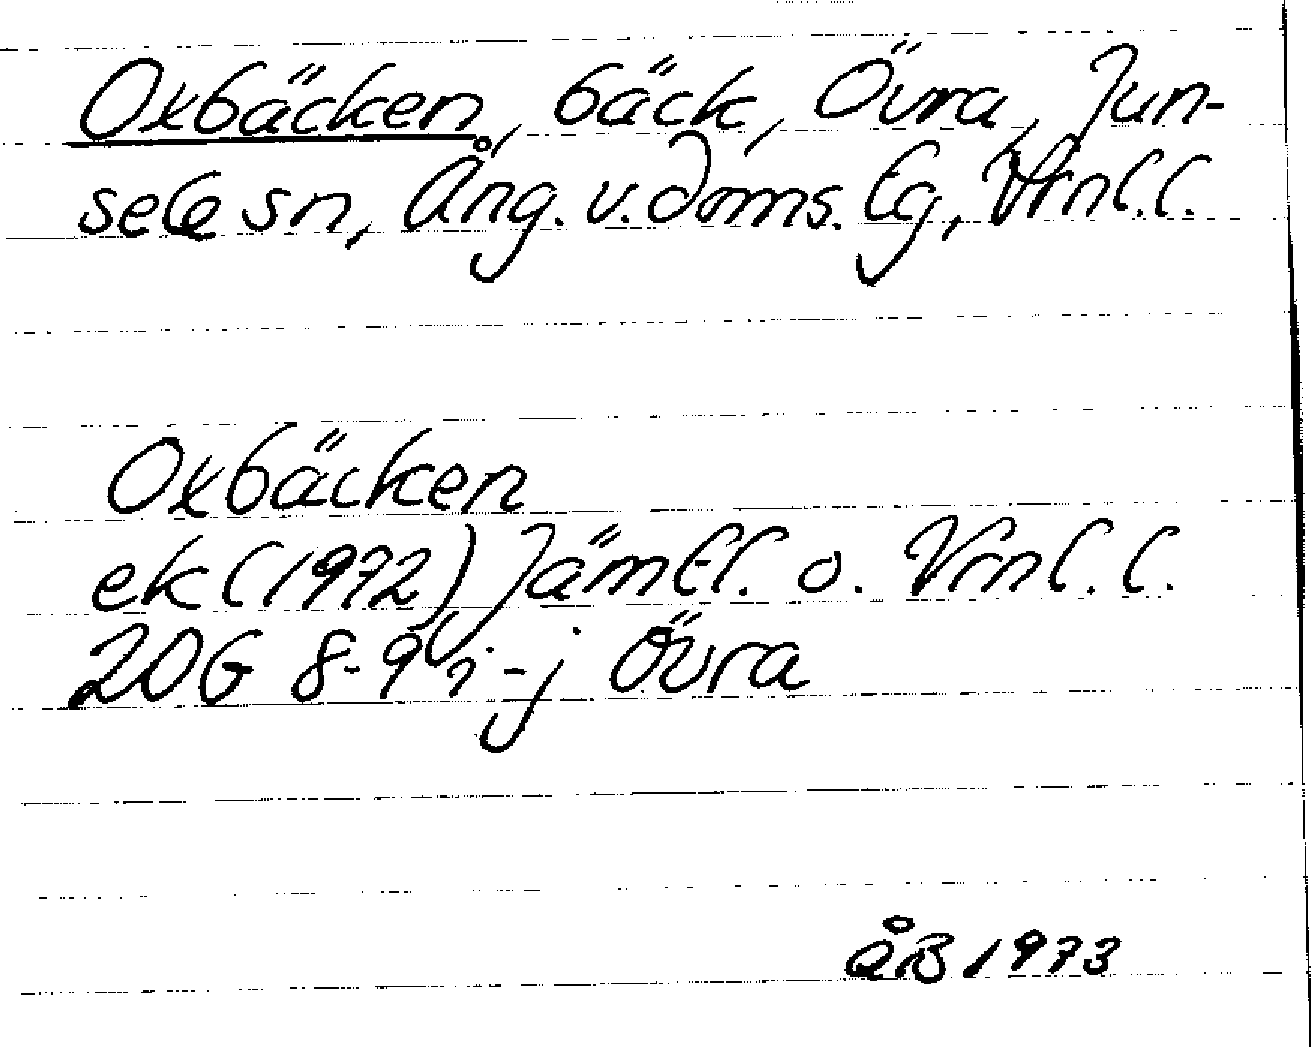 Oxbäcken, bäck, Övra, Jun-
sele sn, Ång. v. doms. tg, Vrnl. l.
Oxbäcken
ek (1972) Jämtl. o. Vrnl. l.
20G 8-9 i-j Övra
ÅB 1973